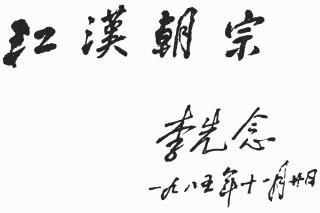 江漢朝宗
李先念
一九八五年十一月廿日